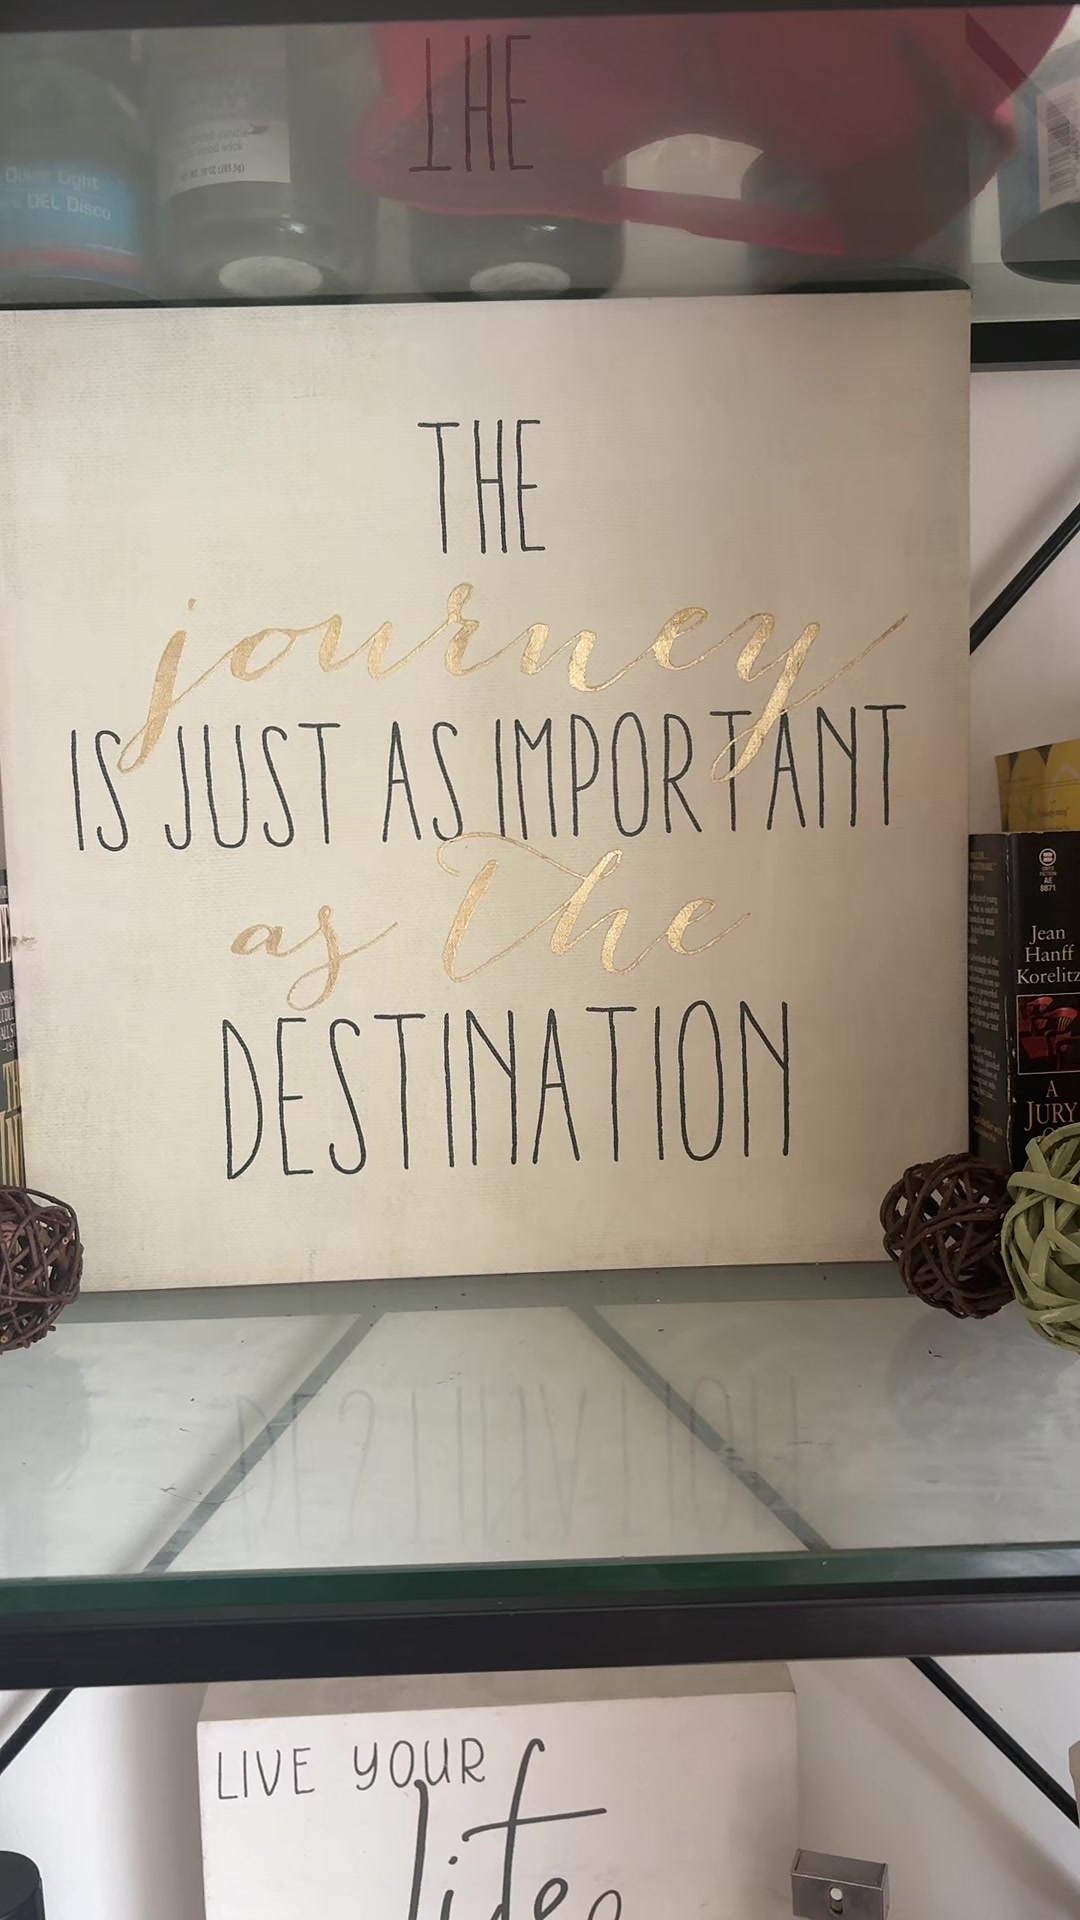 THE
Disco Light
DEL Disco
THE
journey
IS JUST AS IMPORTANT
as The
DESTINATION
AE
8871
Jean
Hanff
Korelitz
A
JURY
LIVE YOUR
life